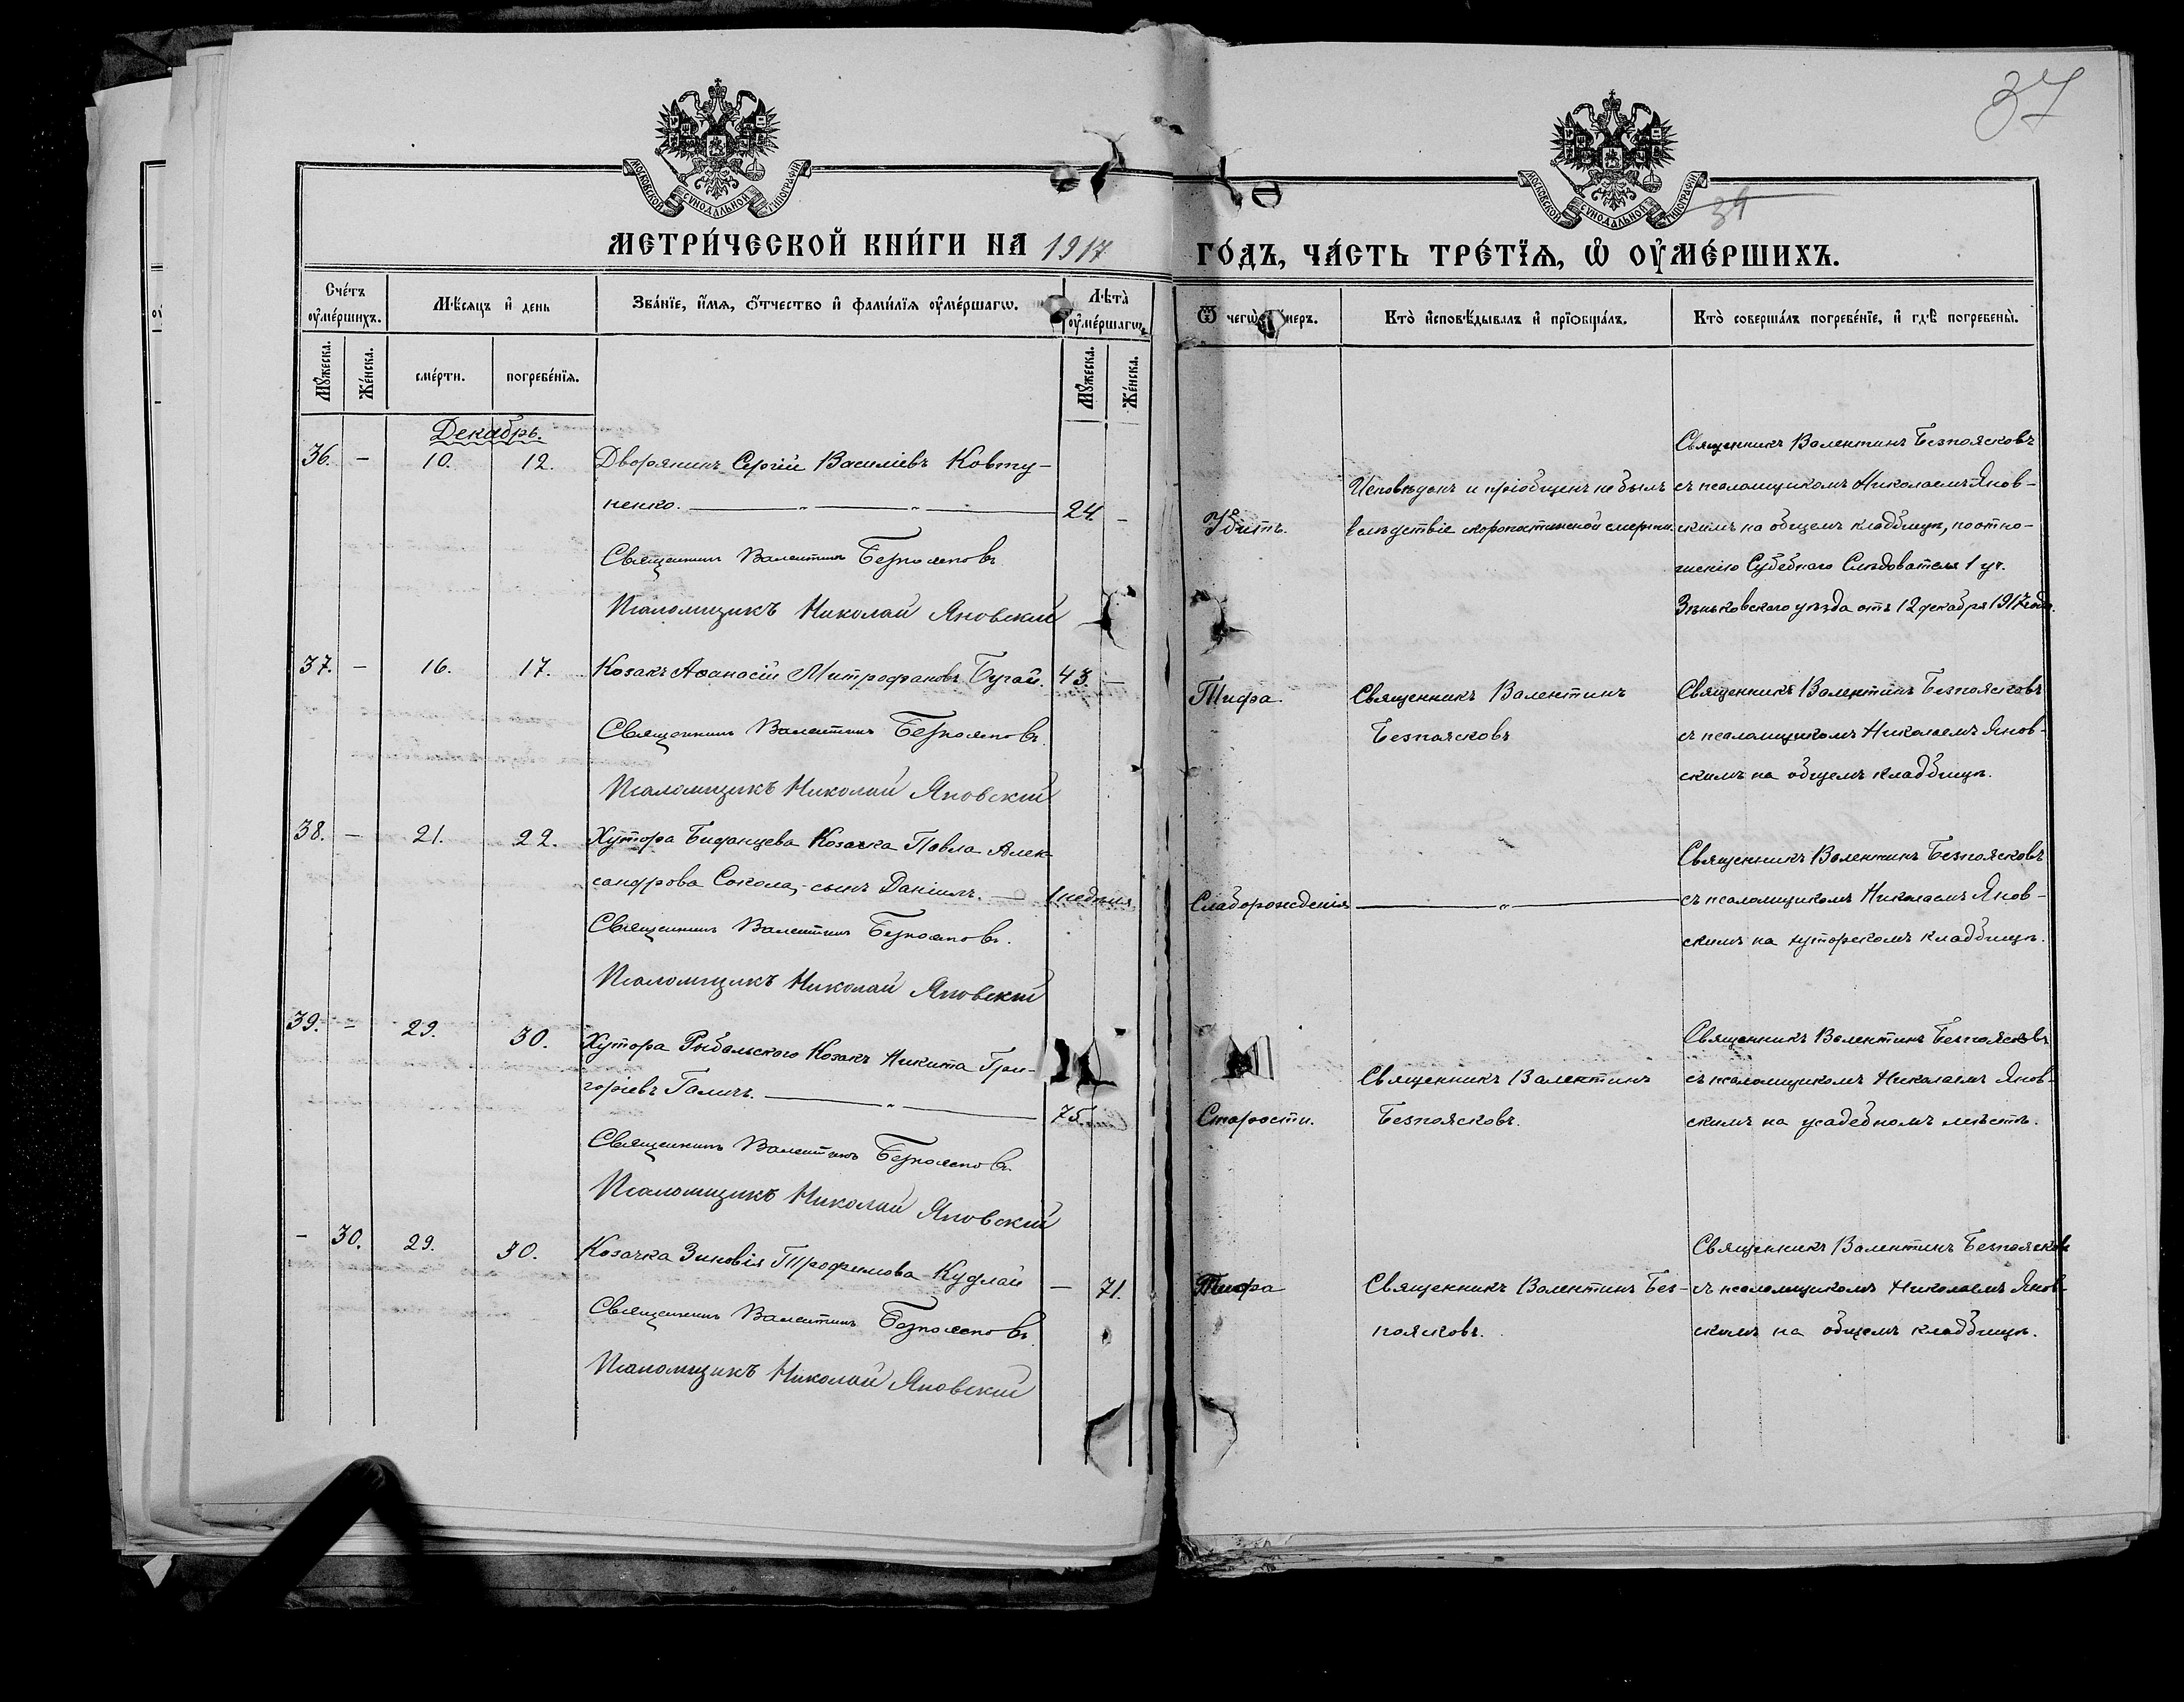 37
МОСКОВСКОЙ СѴНОДАЛЬНОЙ ТИПОГРАФІИ
МОСКОВСКОЙ СѴНОДАЛЬНОЙ ТИПОГРАФІИ
34
МЕТРИ́ЧЕСКОЙ КНИ́ГИ НА 1917
ГО́ДЪ, ЧА́СТЬ ТРЕ́ТЇѦ, Ѡ҆ ОУ҆МЕ́РШИХЪ.
Сче́тъ оу҆ме́ршихъ.
Мѣ́сяцъ и҆ день
Зва́нїе, и҆́мѧ, ѻ҆́тчество и҆ фами́лїѧ оу҆ме́ршагѡ.
Лѣта̀ оу҆ме́ршагѡ.
Ѿ чегѡ̀ меръ.
Кто̀ и҆сповѣ́дывалъ и҆ прїѻбща́лъ.
Кто̀ соверша́лъ погребе́нїе, и҆ гдѣ̀ погребены̀.
Мꙋ́жеска.
Же́нска.
сме́рти.
погребе́нїѧ.
Мꙋ́жеска.
Же́нска.
Декабрь.
36. — 10. 12. Дворянинъ Сергій Василіевъ Ковту-
ненко. — „ — „ — 24. —
Священникъ Валентинъ Безпоясковъ
Псаломщикъ Николай Яновскій
Убитъ.
Исповѣданъ и пріобщенъ не былъ
вслѣдствіе скоропостижной смерти.
Священникъ Валентинъ Безпоясковъ
съ псаломщикомъ Николаемъ Янов-
скимъ на общемъ кладбищѣ, по отно-
шенію Судебнаго Слѣдователя 1 уч.
Зѣньковского уѣзда отъ 12 декабря 1917 года.
37. — 16. 17. Козакъ Аѳанасій Митрофановъ Бугай. 43. —
Священникъ Валентинъ Безпоясковъ.
Псаломщикъ Николай Яновскій
Тифа.
Священникъ Валентинъ
Безпоясковъ
Священникъ Валентинъ Безпоясковъ
съ псаломщикомъ Николаемъ Янов-
скимъ на общемъ кладбищѣ.
38. — 21. 22. Хутора Биданцева Козачка Павла Алек-
сандрова Сокола, сынъ Даніилъ. — 1 недѣля
Священникъ Валентинъ Безпоясковъ.
Псаломщикъ Николай Яновскій
Слаборожденія — „ —
Священникъ Валентинъ Безпоясковъ
съ псаломщикомъ Николаемъ Янов-
скимъ на хуторскомъ кладбищѣ.
39. — 29. 30. Хутора Рыбальского Козакъ Никита Гри-
горіевъ Галичъ. — „ — 75
Священникъ Валентинъ Безпоясковъ.
Псаломщикъ Николай Яновскій
Старости.
Священникъ Валентинъ
Безпоясковъ.
Священникъ Валентинъ Безпоясковъ
съ псаломщикомъ Николаемъ Янов-
скимъ на усадебномъ мѣстѣ.
— 30. 29. 30. Козачка Зиновія Трофимова Кудлай — 71.
Священникъ Валентинъ Безпоясковъ.
Псаломщикъ Николай Яновскій
Тифа
Священникъ Валентинъ Без-
поясковъ.
Священникъ Валентинъ Безпоясковъ
съ псаломщикомъ Николаемъ Янов-
скимъ на общемъ кладбищѣ.